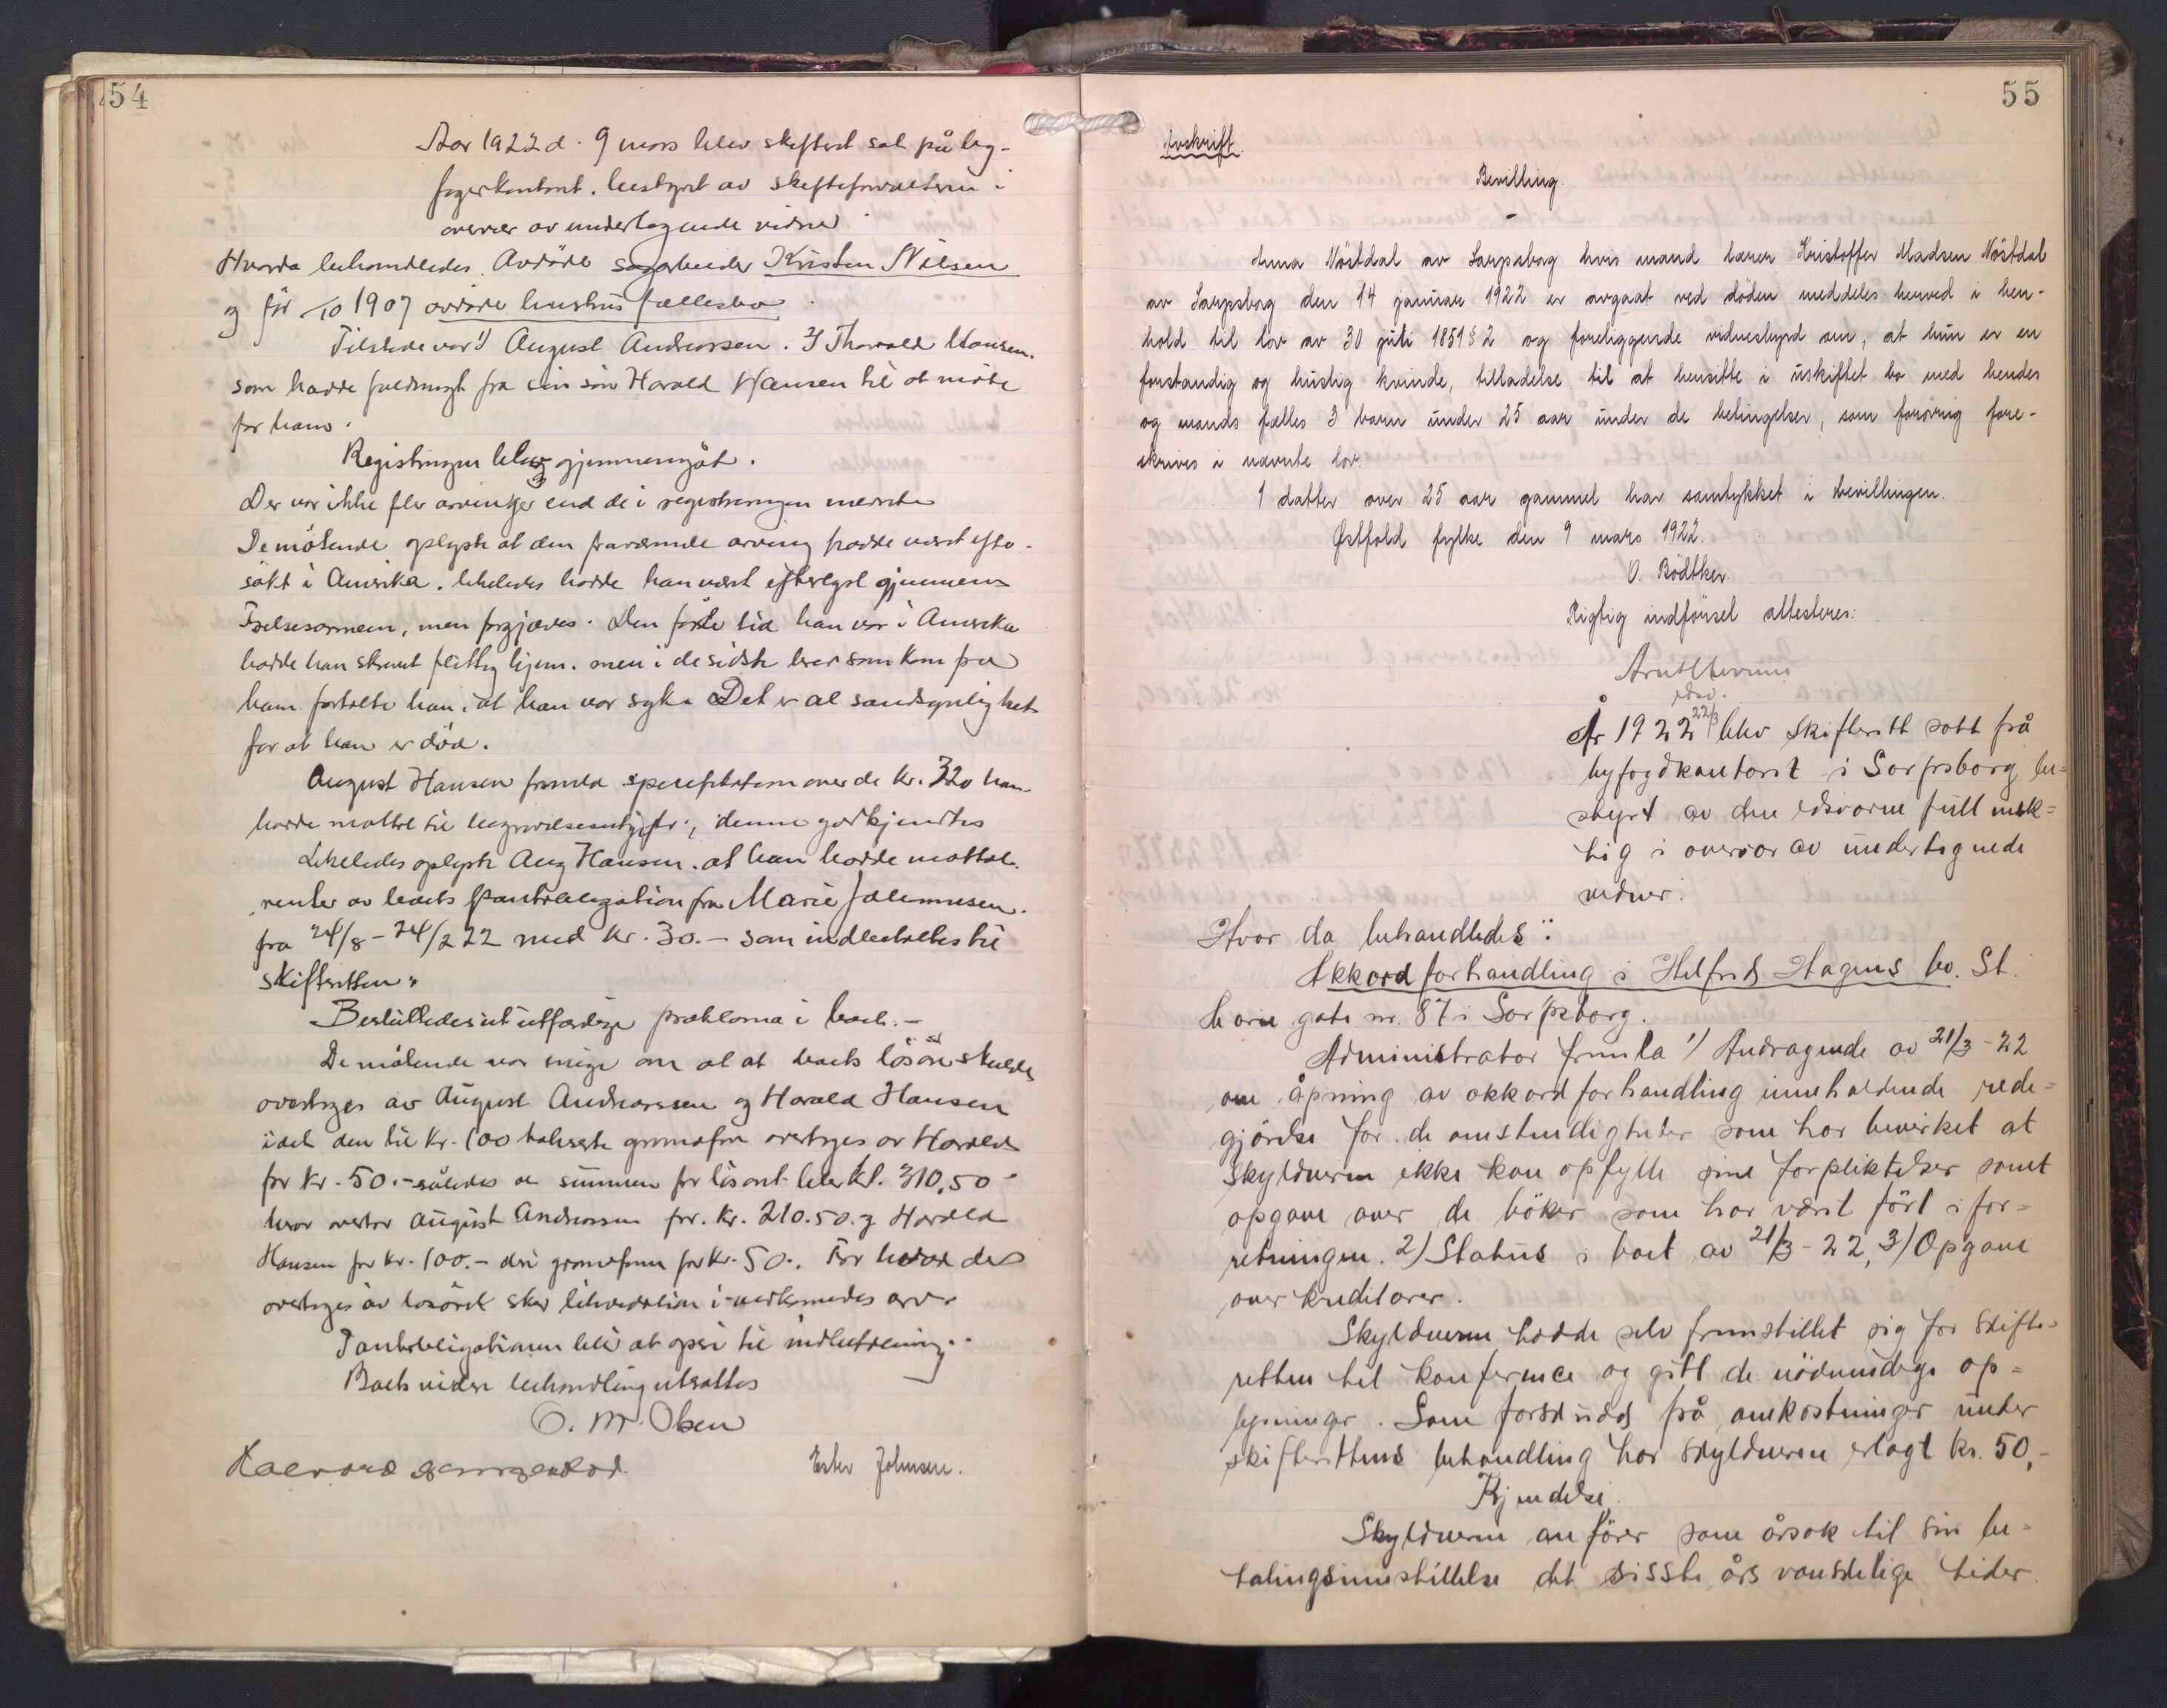 54
Aar 1922 d. 9 mars blev skifteret sat på by-
fogerkontoret. bestyret av skifteforvalteren i
overvær av undertegnede vidner
Hvorda behandledes Avdöde sagarbeider Kristen Nilsen
og för 1907 avdöde hustrus fællesbo
Tilstede var 1) August Andreassen. 2) Thorvald Hansen.
som hadde fuldmagt fra sin sön Harald Hansen til at möte
for ham.
Registringen blev gjennemgåt.
Der var ikke fler arvinger end de i registreringen nævnte
De mötende oplyste at den fraværende arving hadde været efter-
sökt i Amerika. likeledes hadde han været efterlyst gjennem
Frelsesarmeen, men forgjæves. Den förste tid han var i Amerika
hadde han skrevet flittig hjem. men i de sidste brev som kom fra
ham fortalte han, at han var syk. Det er al sandsynlighet
for at han er död.
August Hansen fremla specifikation over de kr. 320 han
hadde mottat til begravelsesutgifter, denne godkjendtes
Likeledes oplyste Aug Hansen. at han hadde mottat
renter av boets Pantobligation fra Marie Johannesen.
fra 24/8 - 24/2 22 med kr. 30.- som indbetaltes til
skifteretten.
Besluttedes at utfærdige proklama i boet.-
De mötende var enige om at at boets lösöre skulde
overtages av August Andreassen og Harald Hansen
idet den til kr. 100 takserte gramofon overtages av Harald
for kr. 50.- således at summen for lösöret blev kr. 310,50
hvor overtar August Andreassen for. kr. 210.50. og Harald
Hansen for kr. 100.- den gramofon for kr. 50.. For hvad der
overtages av lösöret sker likvidation i vedkommendes arv.
Pantobligationen blir at opsi til indbetaling..
Boets videre behandling utsattes
O. M. Olsen
Ester Johnsen.
55
Avskrift.
Bevilling.
Anna Nöstdal av Sarpsborg hvis mand lærer Kristoffer Madsen Nöstdal
av Sarpsborg den 14 januar 1922 er avgaat ved döden meddeles herved i hen-
hold til lov av 30 juli 1851 § 2 og foreliggende vidnesbyrd om, at hun er en
forstandig og huslig kvinde, tilladelse til at hensitte i uskiftet bo med hendes
og mands fælles 3 barn under 25 aar under de betingelser, som forövrig fore-
skrives i nævnte lov.
1 datter over 25 aar gammel har samtykket i bevillingen.
Østfold fylke den 9 mars 1922.
O. Bödtker.
Rigtig indförsel attesteres:
edsv.
År 1922 22/3 blev skifterett satt på
byfogdkontoret i Sarpsborg be-
styrt av den edsvorne fullmek-
tig i overvær av undertegnede
vidner:
Hvor da behandledes:
Akkordforhandling i Helfrid Hagens bo. St.
Marie gate nr. 87 i Sarpsborg.
Administrator fremla 1) Andragende av 21/3 - 22
om åpning av akkordforhandling inneholdende rede-
gjörelse for de omstendigheter som har bevirket at
Skyldneren ikke kan opfylle sine forpliktelser samt
opgave over de böker som har vært fört i for-
retningen. 2) Status i boet av 21/3 - 22, 3) Opgave
over kreditorer.
Skyldneren hadde selv fremstillet sig for Skifte-
retten til konferance og gitt de nödvendige op-
lysninger. Som forskudd på omkostninger under
skifterettens behandling har skyldneren erlagt kr. 50,-
Kjendelse.
Skyldneren anförer som årsak til sin be-
talingsinnstillelse det sisste års vanskelige tider